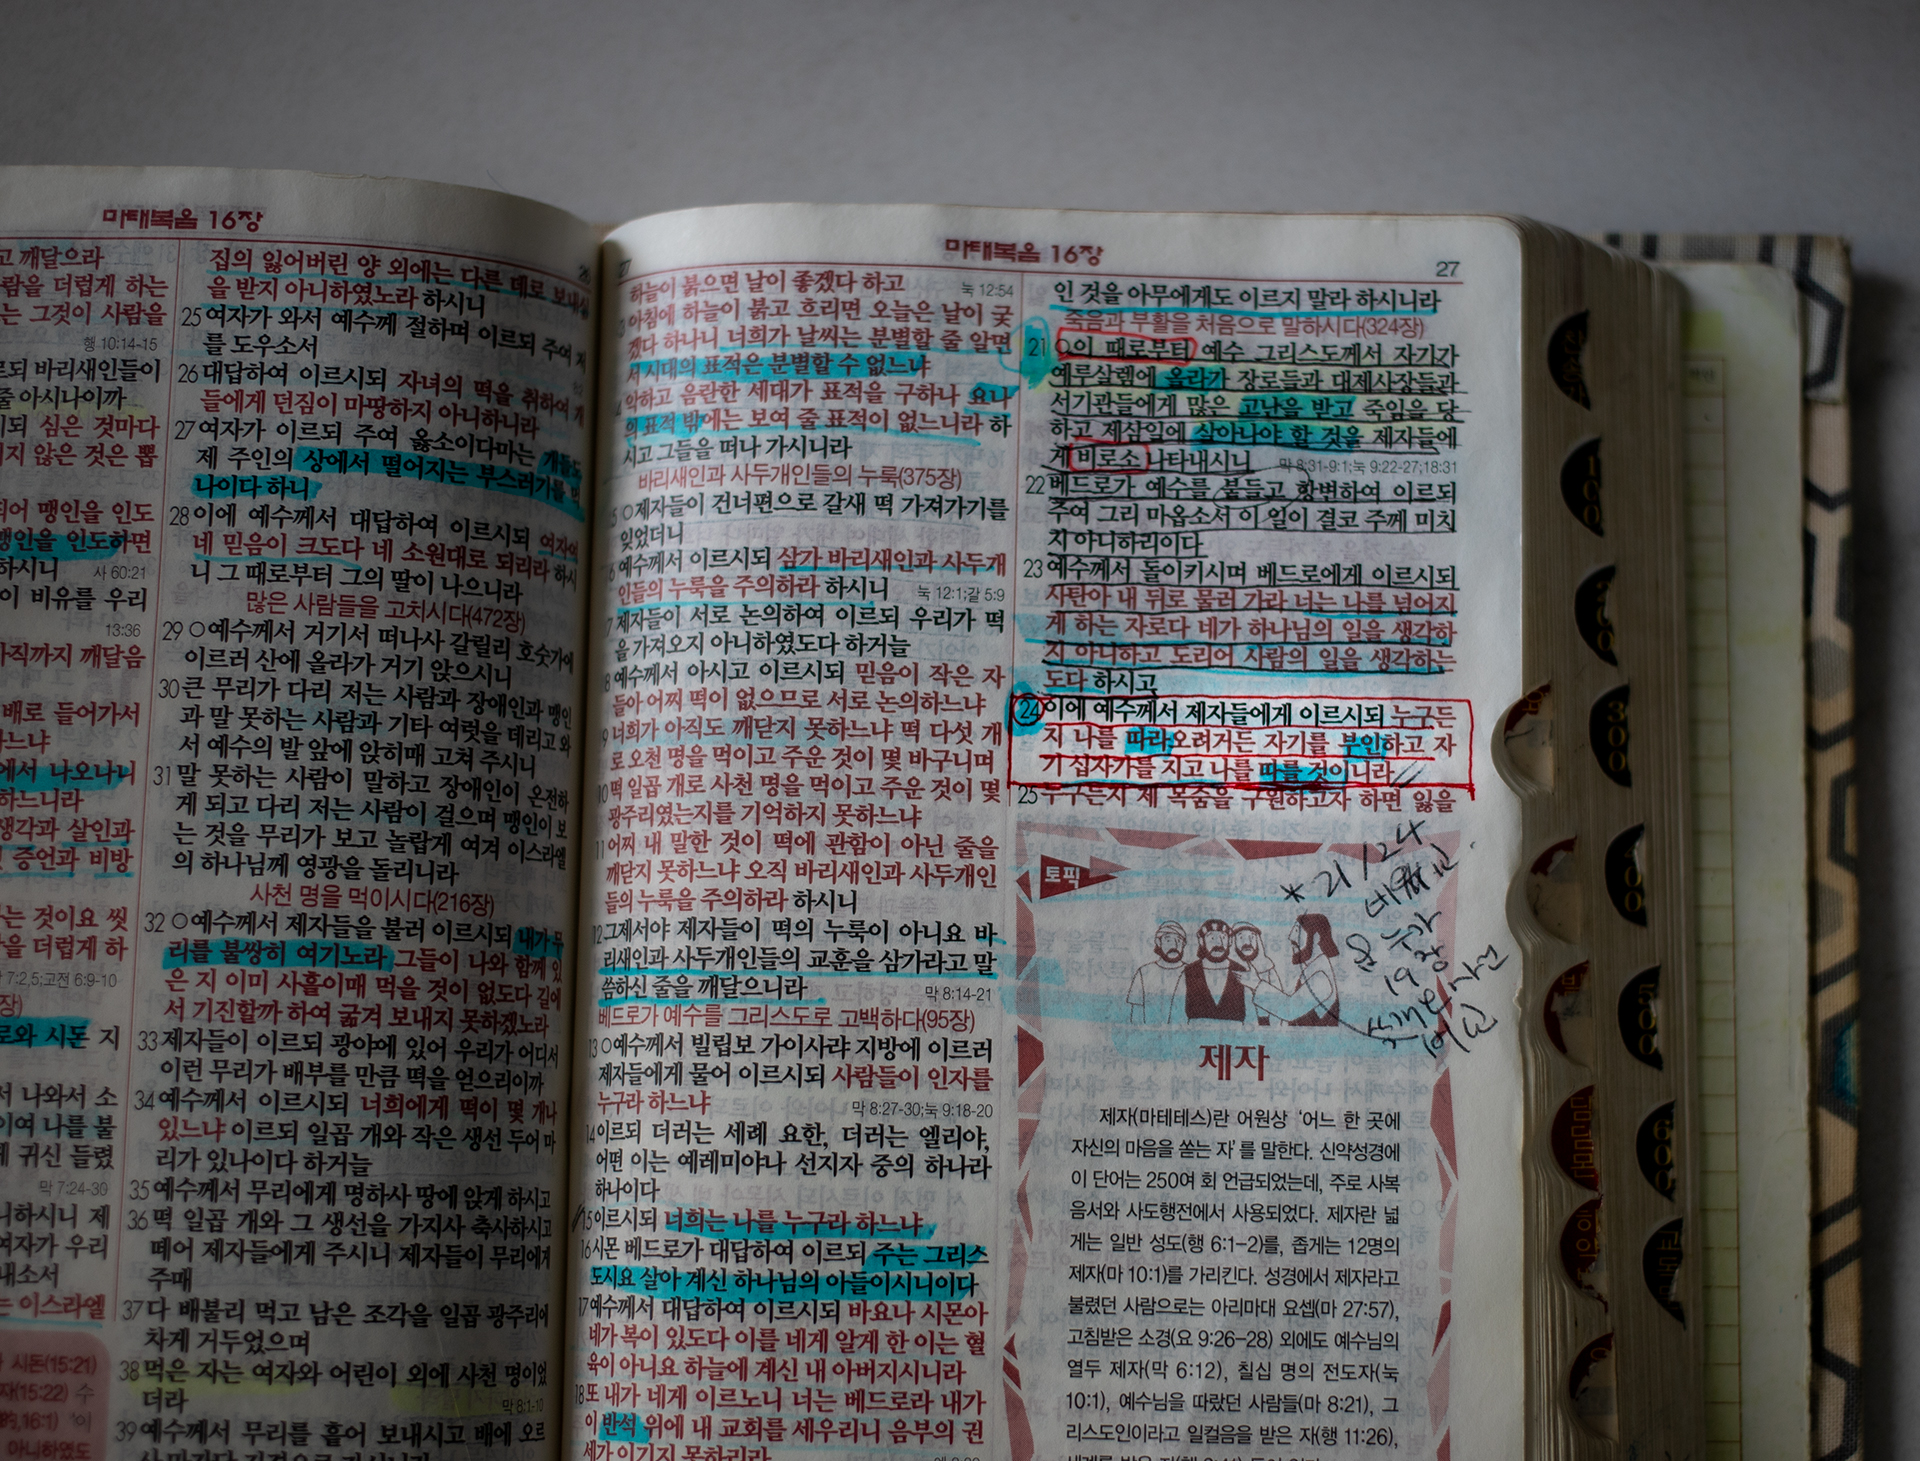 마태복음 16장
고 깨달으라
람을 더럽게 하는
는 그것이 사람을
행 10:14-15
르되 바리새인들이
줄 아시나이까
시되 심은 것마다
지 않은 것은 뽑
되어 맹인을 인도
맹인을 인도하면
하시니 사 60:21
이 비유를 우리
13:36
아직까지 깨달음
배로 들어가서
하느니라
생각과 살인과
증언과 비방
는 것이요 씻
을 더럽게 하
7:2,5;고전 6:9-10
로와 시돈 지
서 나와서 소
이여 나를 불
게 귀신 들렸
막 7:24-30
니하시니 제
여자가 우리
내소서
는 이스라엘
시돈(15:21)
집의 잃어버린 양 외에는 다른 데로 보내심
을 받지 아니하였노라 하시니
25 여자가 와서 예수께 절하며 이르되 주여 저
를 도우소서
26 대답하여 이르시되 자녀의 떡을 취하여 개
들에게 던짐이 마땅하지 아니하니라
27 여자가 이르되 주여 옳소이다마는 개들도
제 주인의 상에서 떨어지는 부스러기를 먹
나이다 하니
28 이에 예수께서 대답하여 이르시되 여자여
네 믿음이 크도다 네 소원대로 되리라 하시
니 그 때로부터 그의 딸이 나으니라
많은 사람들을 고치시다(472장)
29 ○예수께서 거기서 떠나사 갈릴리 호숫가에
이르러 산에 올라가 거기 앉으시니
30 큰 무리가 다리 저는 사람과 장애인과 맹인
과 말 못하는 사람과 기타 여럿을 데리고 와
서 예수의 발 앞에 앉히매 고쳐 주시니
31 말 못하는 사람이 말하고 장애인이 온전하
게 되고 다리 저는 사람이 걸으며 맹인이 보
는 것을 무리가 보고 놀랍게 여겨 이스라엘
의 하나님께 영광을 돌리니라
사천 명을 먹이시다(216장)
32 ○예수께서 제자들을 불러 이르시되 내가 무
리를 불쌍히 여기노라 그들이 나와 함께 있
은 지 이미 사흘이매 먹을 것이 없도다 길에
서 기진할까 하여 굶겨 보내지 못하겠노라
33 제자들이 이르되 광야에 있어 우리가 어디서
이런 무리가 배부를 만큼 떡을 얻으리이까
34 예수께서 이르시되 너희에게 떡이 몇 개나
있느냐 이르되 일곱 개와 작은 생선 두어 마
리가 있나이다 하거늘
35 예수께서 무리에게 명하사 땅에 앉게 하시고
36 떡 일곱 개와 그 생선을 가지사 축사하시고
떼어 제자들에게 주시니 제자들이 무리에게
주매
37 다 배불리 먹고 남은 조각을 일곱 광주리에
차게 거두었으며
38 먹은 자는 여자와 어린이 외에 사천 명이었
더라 막 8:1-10
39 예수께서 무리를 흩어 보내시고 배에 오르
마태복음 16장
27
하늘이 붉으면 날이 좋겠다 하고 눅 12:54
3 아침에 하늘이 붉고 흐리면 오늘은 날이 궂
겠다 하나니 너희가 날씨는 분별할 줄 알면
서 시대의 표적은 분별할 수 없느냐
4 악하고 음란한 세대가 표적을 구하나 요나
의 표적 밖에는 보여 줄 표적이 없느니라 하
시고 그들을 떠나 가시니라
바리새인과 사두개인들의 누룩(375장)
5 ○제자들이 건너편으로 갈새 떡 가져가기를
잊었더니
6 예수께서 이르시되 삼가 바리새인과 사두개
인들의 누룩을 주의하라 하시니 눅 12:1;갈 5:9
7 제자들이 서로 논의하여 이르되 우리가 떡
을 가져오지 아니하였도다 하거늘
8 예수께서 아시고 이르시되 믿음이 작은 자
들아 어찌 떡이 없으므로 서로 논의하느냐
9 너희가 아직도 깨닫지 못하느냐 떡 다섯 개
로 오천 명을 먹이고 주운 것이 몇 바구니며
10 떡 일곱 개로 사천 명을 먹이고 주운 것이 몇
광주리였는지를 기억하지 못하느냐
11 어찌 내 말한 것이 떡에 관함이 아닌 줄을
깨닫지 못하느냐 오직 바리새인과 사두개인
들의 누룩을 주의하라 하시니
12 그제서야 제자들이 떡의 누룩이 아니요 바
리새인과 사두개인들의 교훈을 삼가라고 말
씀하신 줄을 깨달으니라 막 8:14-21
베드로가 예수를 그리스도로 고백하다(95장)
13 ○예수께서 빌립보 가이사랴 지방에 이르러
제자들에게 물어 이르시되 사람들이 인자를
누구라 하느냐 막 8:27-30;눅 9:18-20
14 이르되 더러는 세례 요한, 더러는 엘리야,
어떤 이는 예레미야나 선지자 중의 하나라
하나이다
15 이르시되 너희는 나를 누구라 하느냐
16 시몬 베드로가 대답하여 이르되 주는 그리스
도시요 살아 계신 하나님의 아들이시니이다
17 예수께서 대답하여 이르시되 바요나 시몬아
네가 복이 있도다 이를 네게 알게 한 이는 혈
육이 아니요 하늘에 계신 내 아버지시니라
18 또 내가 네게 이르노니 너는 베드로라 내가
이 반석 위에 내 교회를 세우리니 음부의 권
세가 이기지 못하리라
27
인 것을 아무에게도 이르지 말라 하시니라
죽음과 부활을 처음으로 말하시다(324장)
21 ○이 때로부터 예수 그리스도께서 자기가
예루살렘에 올라가 장로들과 대제사장들과
서기관들에게 많은 고난을 받고 죽임을 당
하고 제삼일에 살아나야 할 것을 제자들에
게 비로소 나타내시니 막 8:31-9:1;눅 9:22-27;18:31
22 베드로가 예수를 붙들고 항변하여 이르되
주여 그리 마옵소서 이 일이 결코 주께 미치
지 아니하리이다
23 예수께서 돌이키시며 베드로에게 이르시되
사탄아 내 뒤로 물러 가라 너는 나를 넘어지
게 하는 자로다 네가 하나님의 일을 생각하
지 아니하고 도리어 사람의 일을 생각하는
도다 하시고
24 이에 예수께서 제자들에게 이르시되 누구든
지 나를 따라오려거든 자기를 부인하고 자
기 십자가를 지고 나를 따를 것이니라
25 누구든지 제 목숨을 구원하고자 하면 잃을
토픽
* 21/24
누가
19장
제자
제자(마테테스)란 어원상 '어느 한 곳에
자신의 마음을 쏟는 자'를 말한다. 신약성경에
이 단어는 250여 회 언급되었는데, 주로 사복
음서와 사도행전에서 사용되었다. 제자란 넓
게는 일반 성도(행 6:1-2)를, 좁게는 12명의
제자(마 10:1)를 가리킨다. 성경에서 제자라고
불렸던 사람으로는 아리마대 요셉(마 27:57),
고침받은 소경(요 9:26-28) 외에도 예수님의
열두 제자(막 6:12), 칠십 명의 전도자(눅
10:1), 예수님을 따랐던 사람들(마 8:21), 그
리스도인이라고 일컬음을 받은 자(행 11:26),
100
200
300
400
500
600
교독문